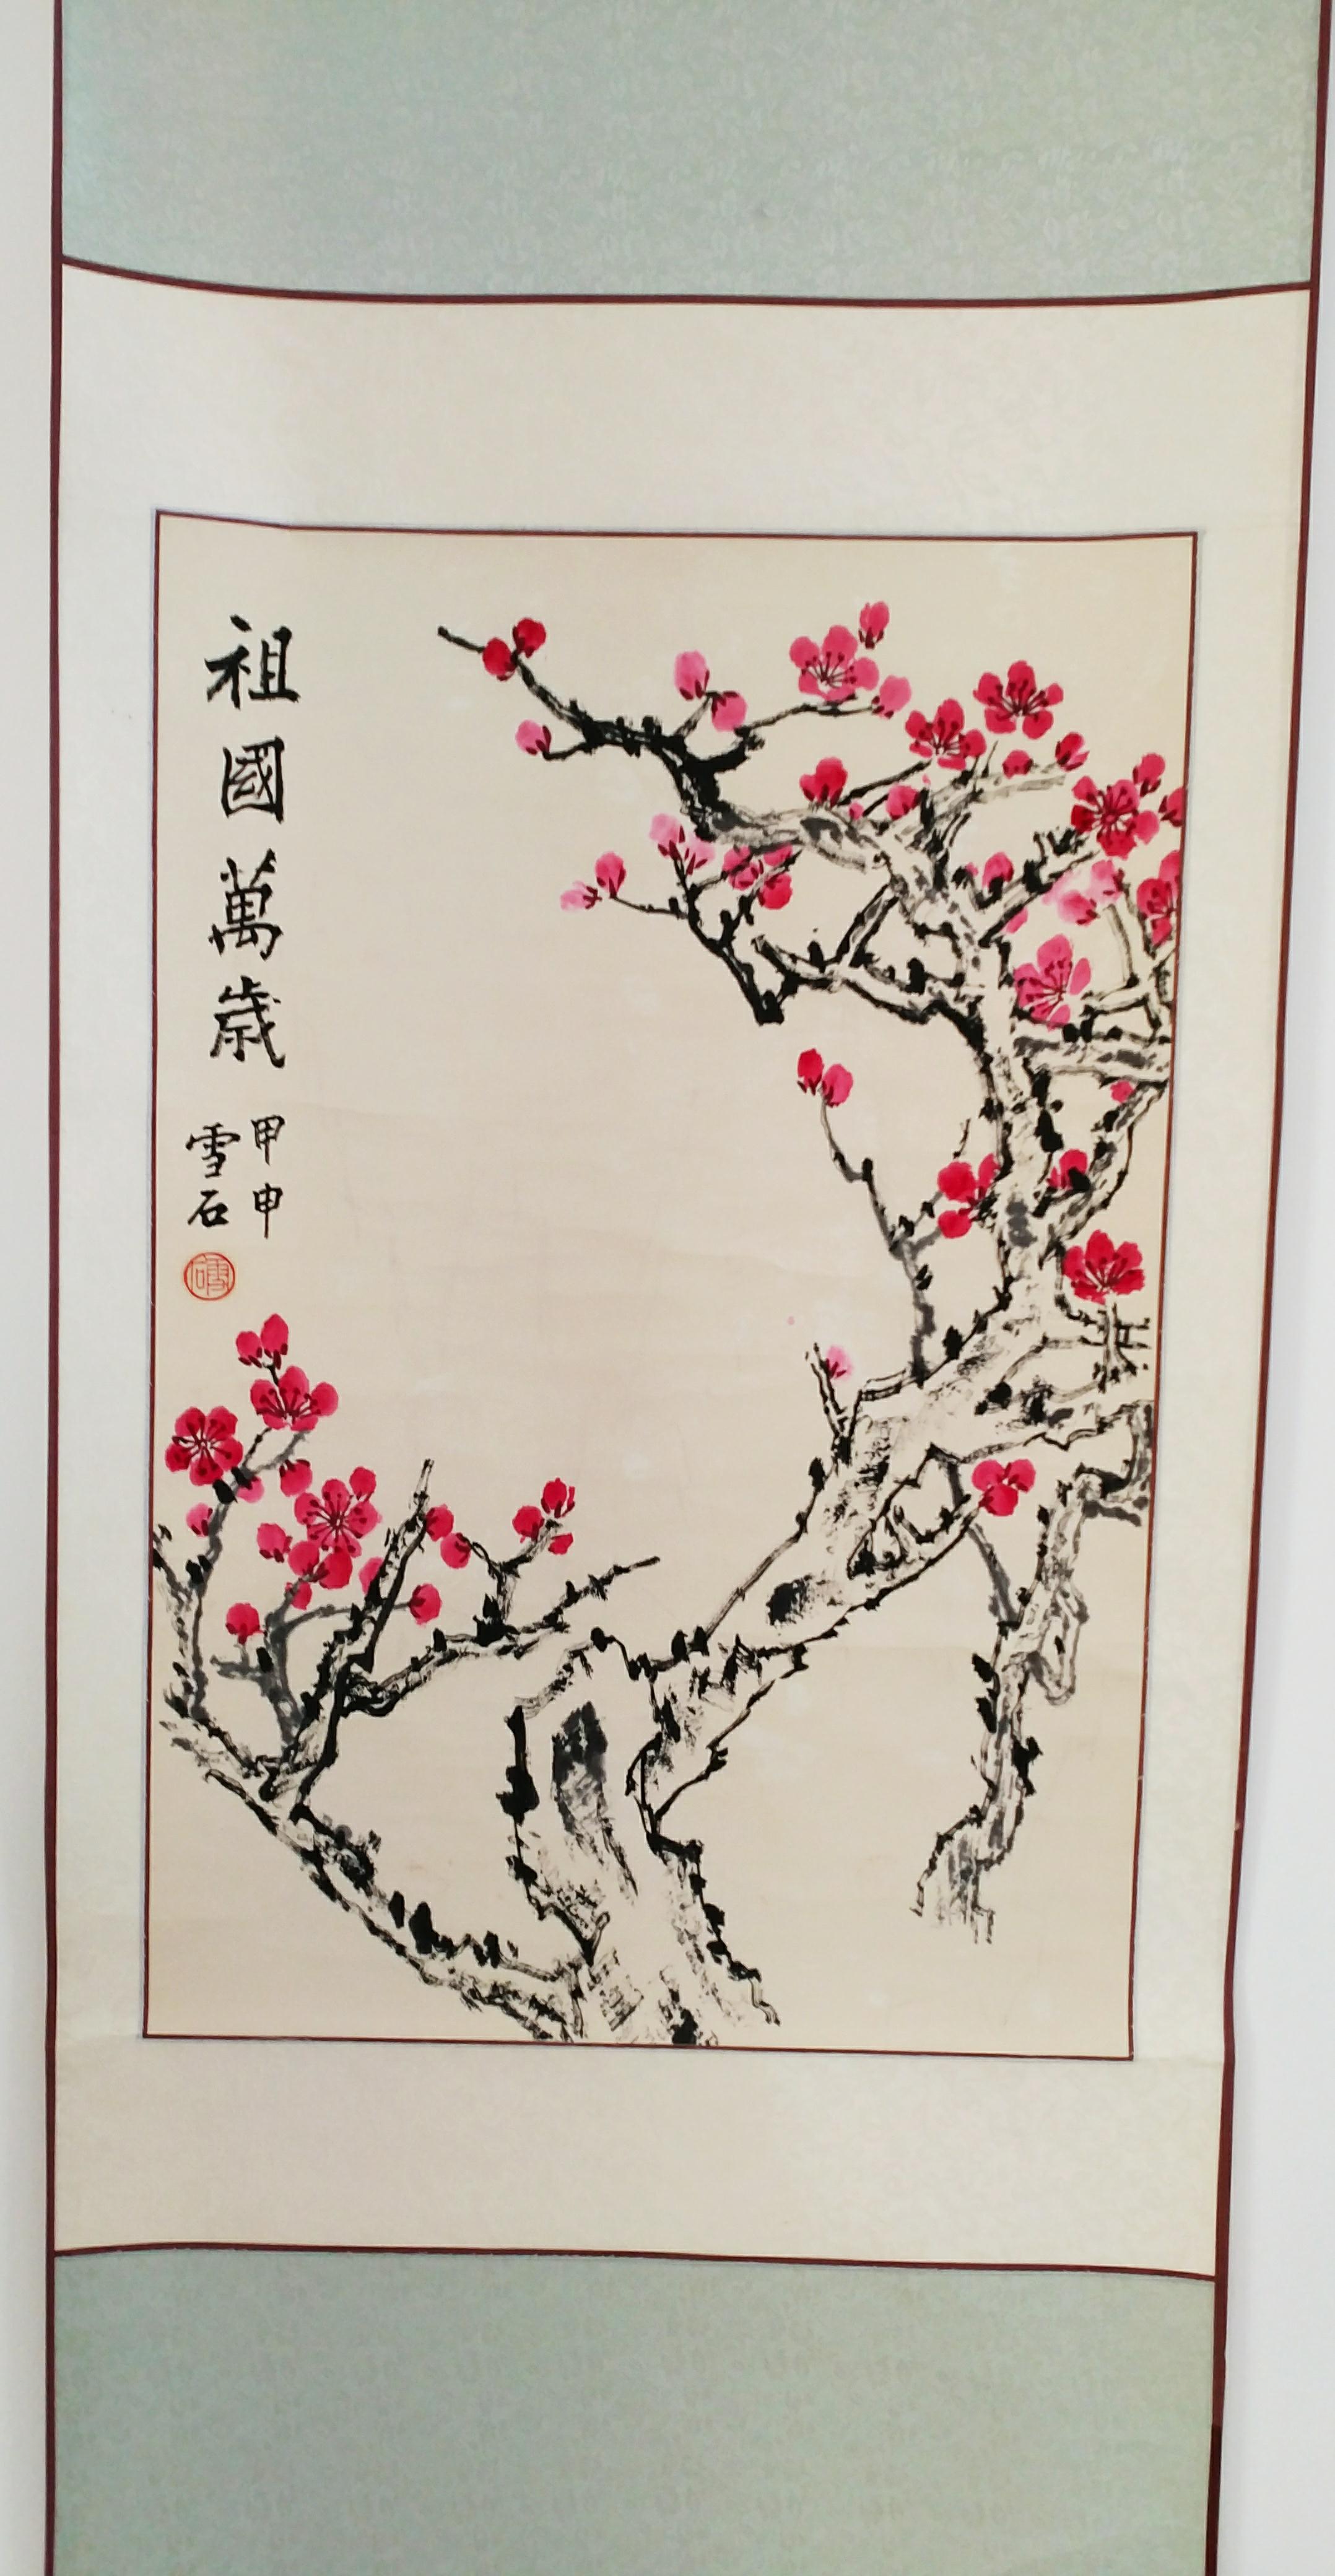 祖國萬歲
甲申
雪石
雪石